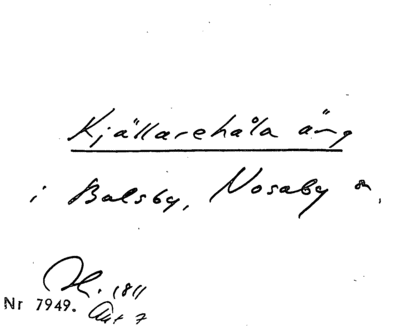 Kjällarehåla äng
i Balsby, Nosaby sn,
H. 1811
Nr 7949. Akt 7